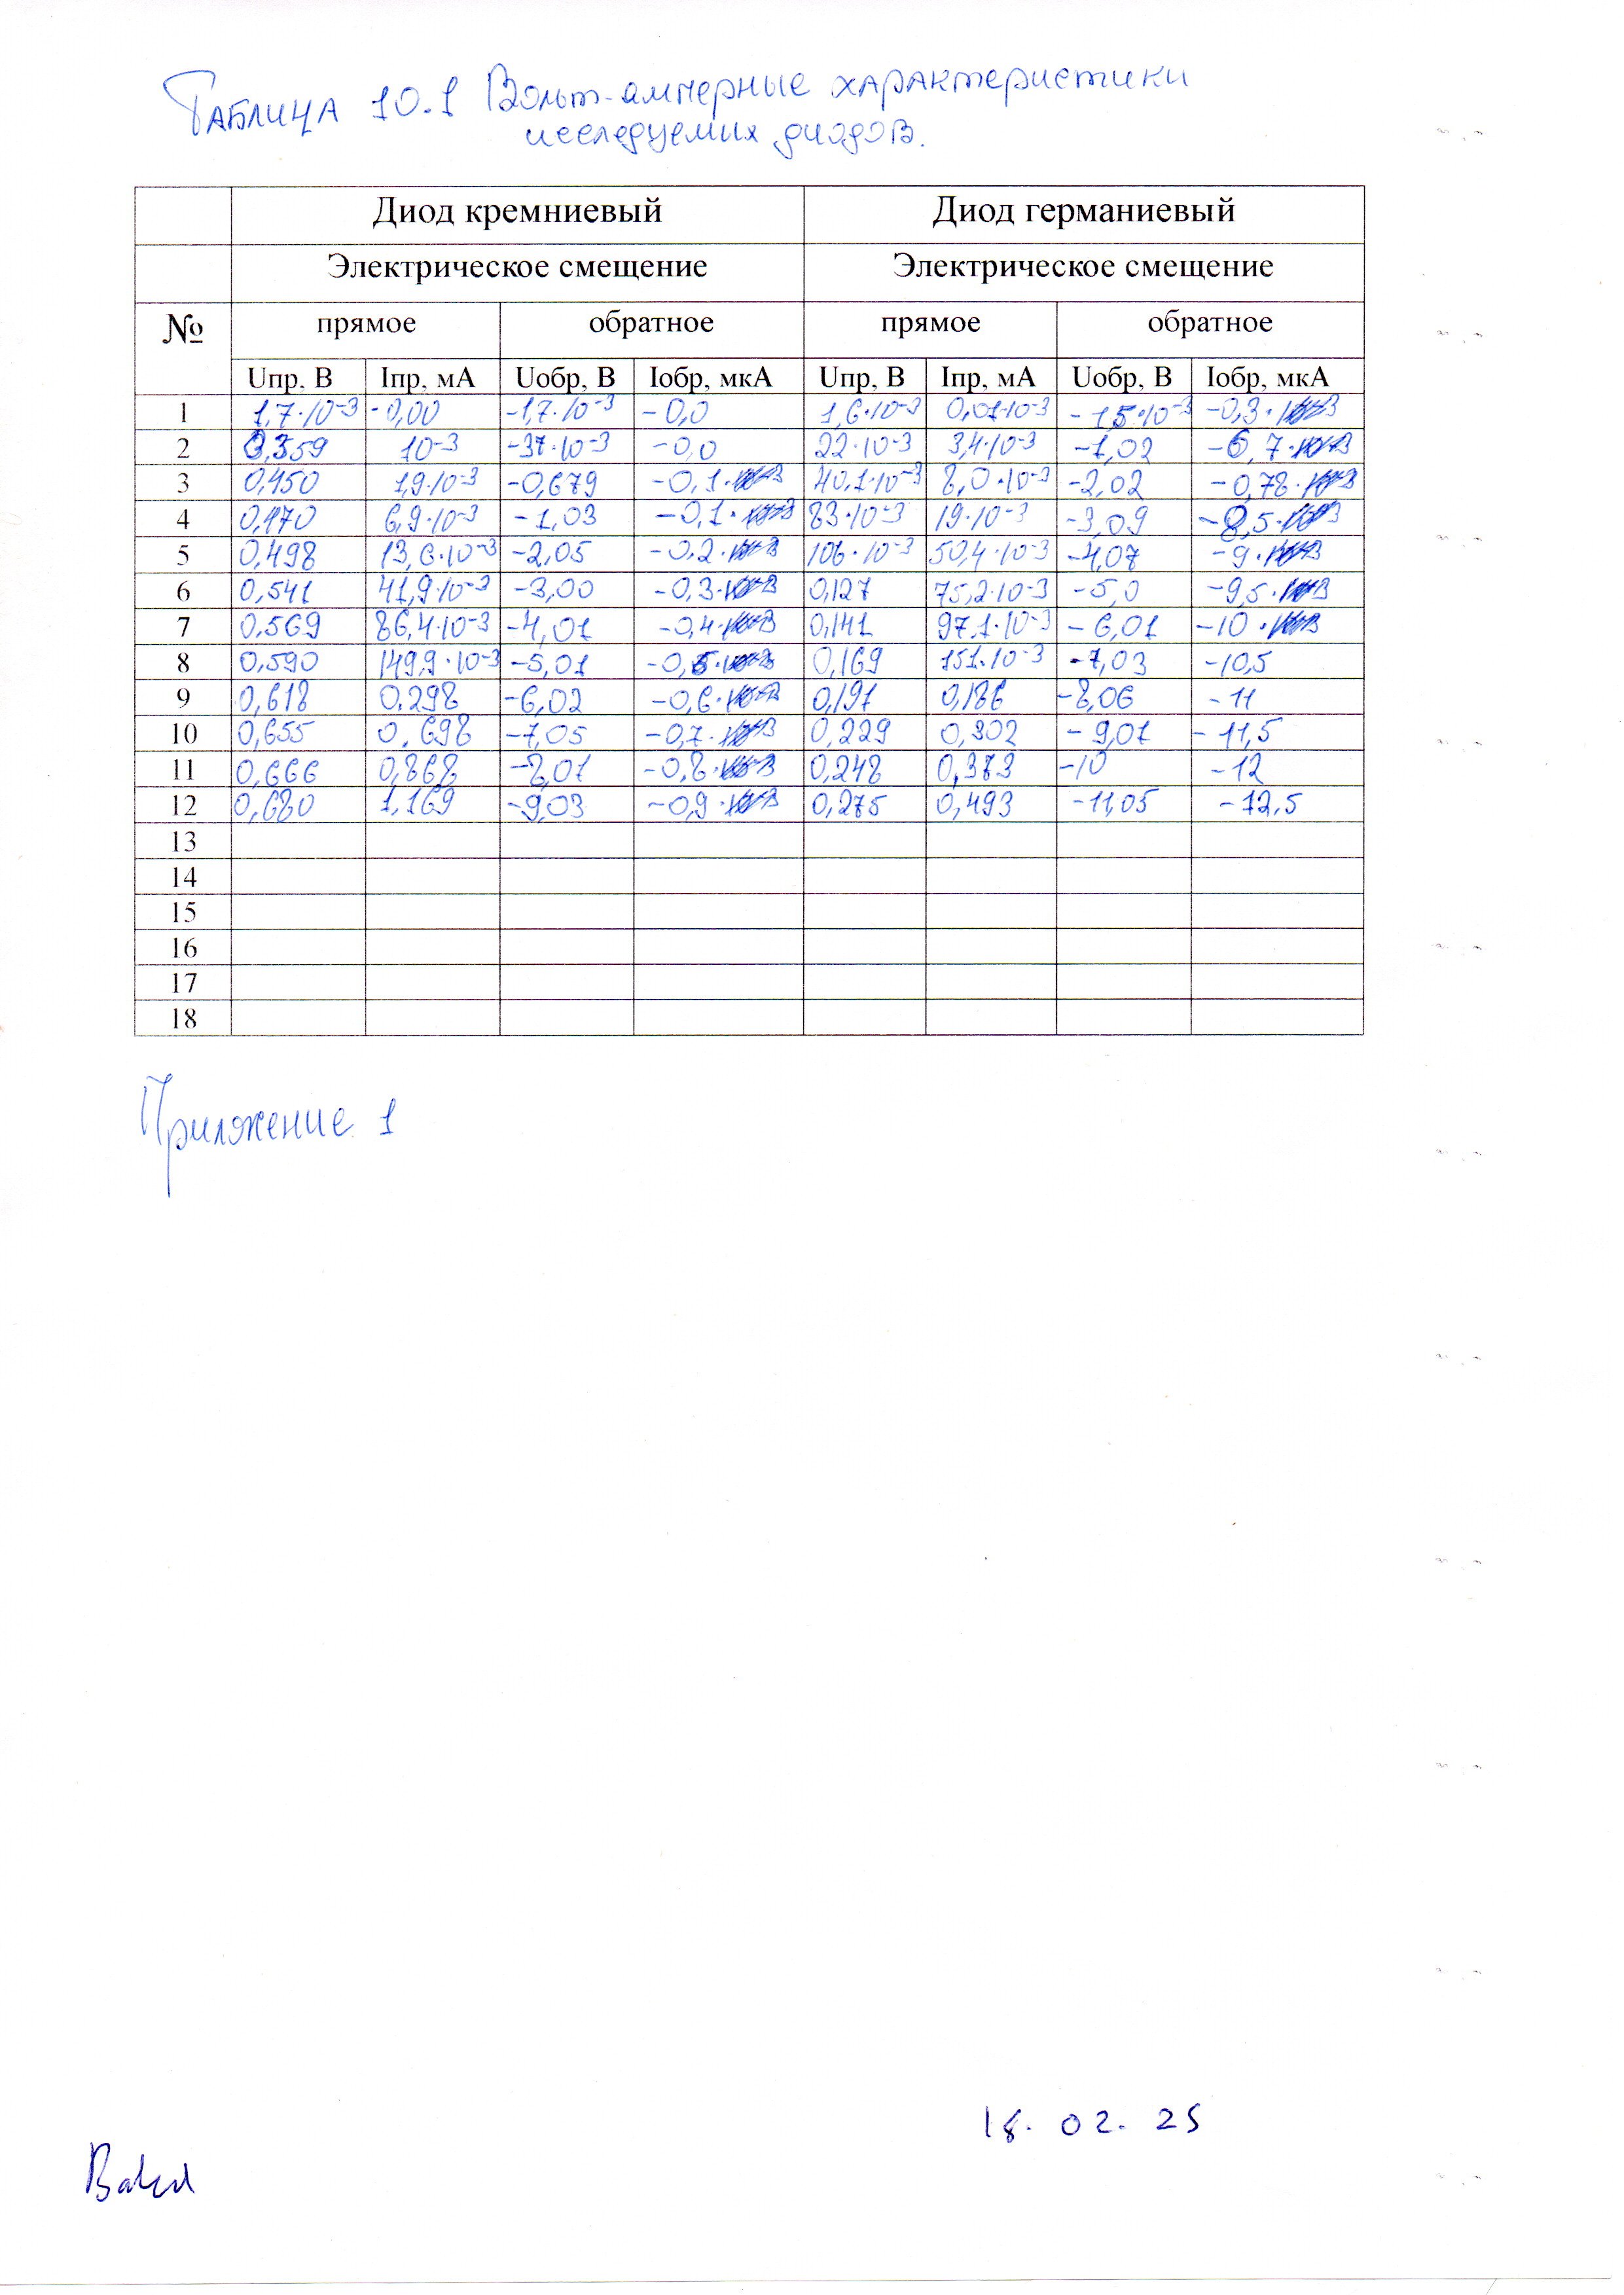 Таблица 10.1 Вольт-амперные характеристики
исследуемих диодов.
Диод кремниевый Диод германиевый
Электрическое смещение Электрическое смещение
№ прямое обратное прямое обратное
Uпр, В Iпр, мА Uобр, В Iобр, мкА Uпр, В Iпр, мА Uобр, В Iобр, мкА
1 1,7·10⁻³ -0,00 -1,7·10⁻³ -0,0 1,6·10⁻³ 0,01·10⁻³ -1,5·10⁻³ -0,3·
2 0,359 10⁻³ -37·10⁻³ -0,0 22·10⁻³ 3,4·10⁻³ -1,02 -6,7·
3 0,450 1,9·10⁻³ -0,679 -0,1· 40,1·10⁻³ 8,0·10⁻³ -2,02 -0,78·
4 0,470 6,9·10⁻³ -1,03 -0,1· 83·10⁻³ 19·10⁻³ -3,09 -8,5·
5 0,498 13,6·10⁻³ -2,05 -0,2· 106·10⁻³ 50,4·10⁻³ -4,07 -9·
6 0,541 41,9·10⁻³ -3,00 -0,3· 0,127 75,2·10⁻³ -5,0 -9,5·
7 0,569 86,4·10⁻³ -4,01 -0,4· 0,141 97,1·10⁻³ -6,01 -10·
8 0,590 149,9·10⁻³ -5,01 -0,5· 0,169 151·10⁻³ -7,03 -10,5
9 0,618 0.298 -6,02 -0,6· 0,197 0,186 -8,06 -11
10 0,655 0.698 -7,05 -0,7· 0,229 0,302 -9,01 -11,5
11 0,666 0,868 -8,01 -0,8· 0,248 0,373 -10 -12
12 0,680 1,169 -9,03 -0,9· 0,275 0,493 -11,05 -12,5
13
14
15
16
17
18
Приложение 1
18. 02. 25